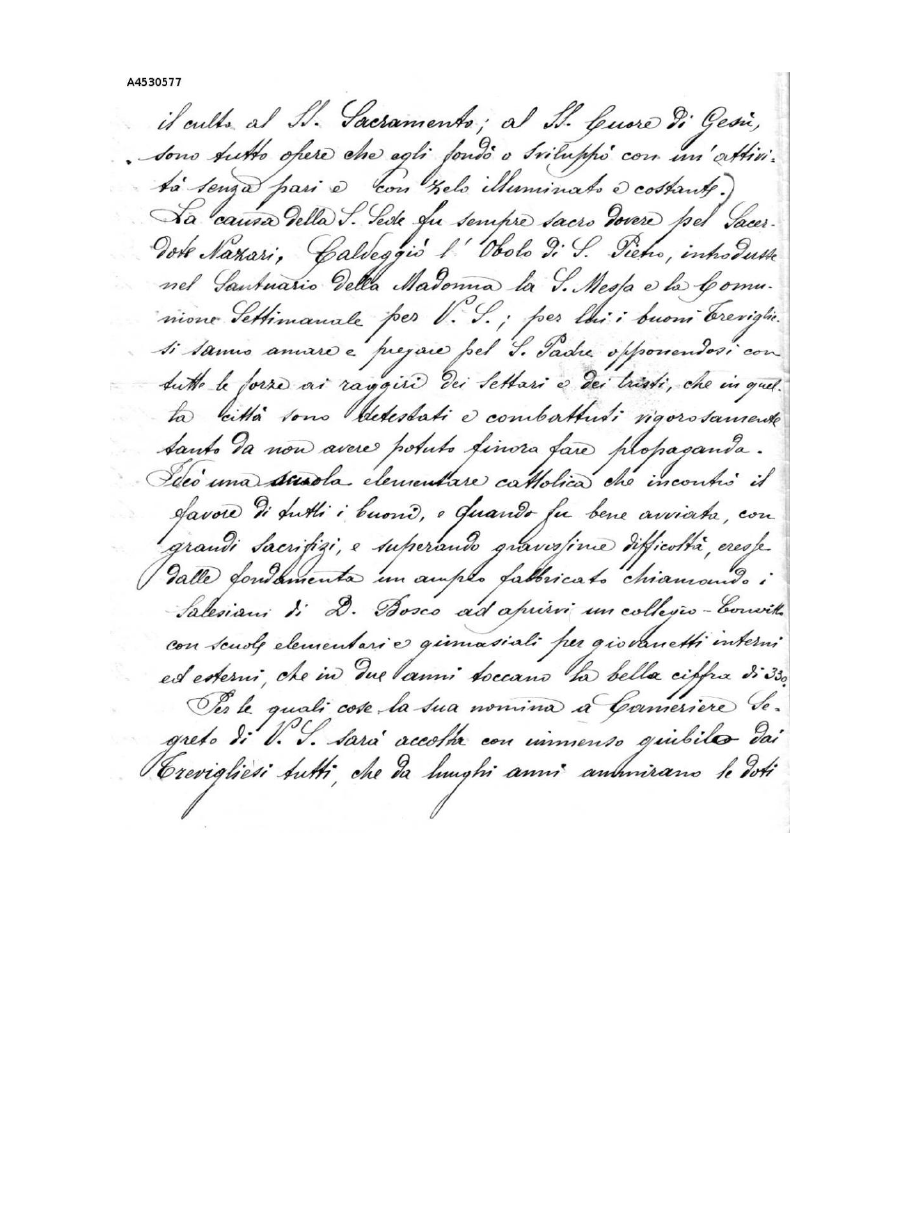 A4530577
il culto al SS. Sacramento; al SS. Cuore di Gesù,
sono tutto opere che egli fondò o sviluppò con un'attivi-
tà senza pari e con zelo illuminato e costante.)
La causa della S. Sede fu sempre sacro dovere pel Sacer-
dote Nazari, Calveggiò l'Obolo di S. Pietro, introdusse
nel Santuario della Madonna la S. Messa e la Comu-
nione Settimanale per V. S.; per lui i buoni Treviglie-
si sanno amare e pregare pel S. Padre opponendosi con
tutte le forze ai raggiri dei settari e dei tristi, che in quel-
la città sono detestati e combattuti vigorosamente
tanto da non avere potuto finora fare propaganda.
Ideò una scuola elementare cattolica che incontrò il
favore di tutti i buoni, e quando fu bene avviata, con
grandi sacrifizi, e superando gravissime difficoltà, eresse
dalle fondamenta un ampio fabbricato chiamando i
Salesiani di D. Bosco ad aprirvi un collegio-Convitto
con scuole elementari e ginnasiali per giovanetti interni
ed esterni, che in due anni toccano la bella ciffra di 330.
Per le quali cose la sua nomina a Cameriere Se-
greto di V. S. sarà accolta con immenso giubilo dai
Trevigliesi tutti, che da lunghi anni ammirano le doti